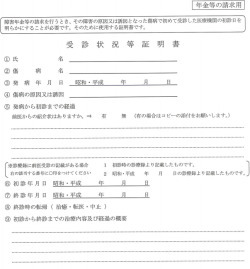 年金等の請求用
障害年金等の請求を行うとき、その障害の原因又は誘因となった傷病で初めて受診した医療機関の初診日を
明らかにすることが必要です。そのために使用する証明書です。
受 診 状 況 等 証 明 書
① 氏 名
② 傷 病 名
③ 発 病 年 月 日 昭和・平成 年 月 日
④ 傷病の原因又は誘因
⑤ 発病から初診までの経過
前医からの紹介状はありますか。⇒ 有 無 (有の場合はコピーの添付をお願いします。)
※診療録に前医受診の記載がある場合 1 初診時の診療録より記載したものです。
右の該当する番号に○印をつけてください 2 昭和・平成 年 月 日の診療録より記載したものです。
⑥ 初 診 年 月 日 昭和・平成 年 月 日
⑦ 終 診 年 月 日 昭和・平成 年 月 日
⑧ 終診時の転帰 ( 治癒・転医・中止 )
⑨ 初診から終診までの治療内容及び経過の概要